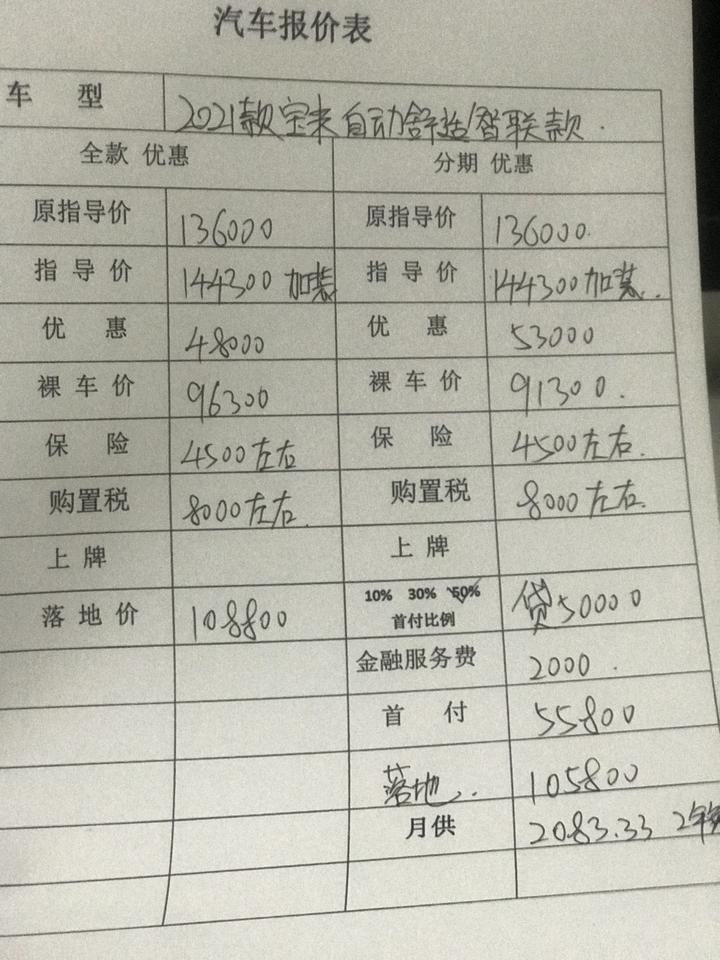 汽车报价表
车 型 2021款宝来自动舒适/智联款.
全款 优惠 分期 优惠
原指导价 136000 原指导价 136000.
指 导 价 144300 加装 指 导 价 144300加装.
优 惠 48000 优 惠 53000
裸车价 96300 裸 车 价 91300.
保 险 4500左右 保 险 4500左右.
购置税 8000左右. 购置税 8000左右.
上 牌 上 牌
落 地 价 108800 10% 30% 50% 首付比例 贷50000
金融服务费 2000.
首 付 55800
落地. 105800
月供 2083.33 2年